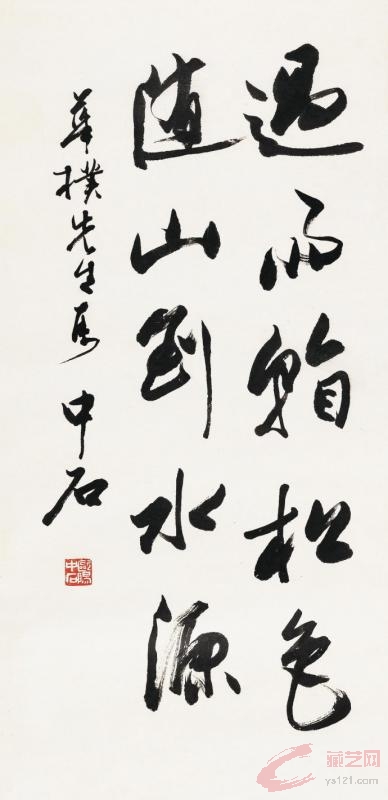 過雨松色
隨山到水源
華樸先生
中石
歐陽中石
藏艺网
ys121.com